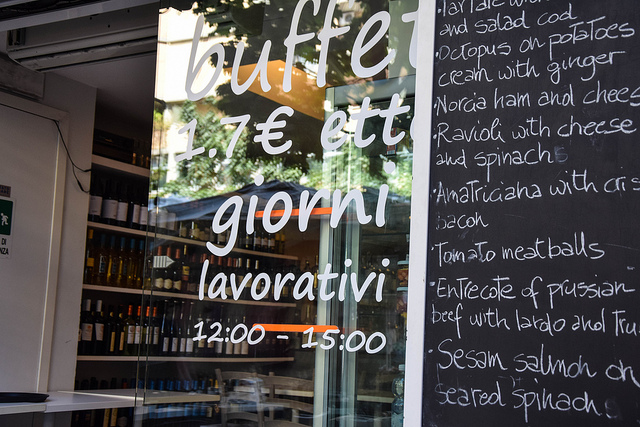 buffet
1.7€ etto
giorni
lavorativi
12:00 - 15:00
and salad cod
·Octopus on potatoes
cream with ginger
·Norcia ham and chees
·Ravioli with cheese
and spinach
·Amatriciana with cris
bacon
·Tomato meatballs
·Entrecote of prussian
beef with lardo and Tru
·Sesam salmon on
seared spinach
DI